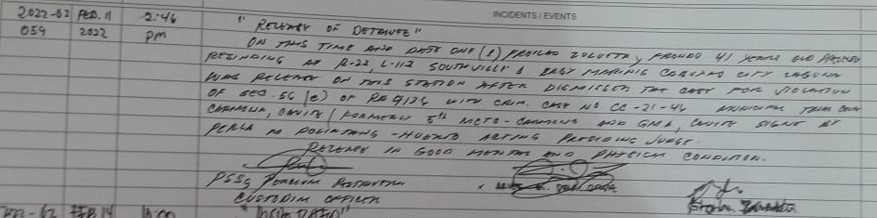 INCIDENTS / EVENTS
2022-02 FEB. 11 2:46 "RELEASE OF DETAINEE"
059 2022 PM ON THIS TIME AND DATE ONE (1) FROILAN ZULUETA y 41 YEARS OLD
RESIDING AT B-22, L-112 SOUTHVILLE 1 BRGY MARINIG CABUYAO CITY LAGUNA
WAS RELEASE ON THIS STATION AFTER DISMISSED THE CASE FOR VIOLATION
OF SEC. 56 (e) OF RA 9136 WITH CRIM. CASE NO CC-21-46 MUNICIPAL TRIAL COURT
CARMONA, CAVITE / FORMERLY 5th MCTC - CARMONA AND GMA, CAVITE SIGNT BY
PERLA ACTING PRESIDING JUDGE.
RELEASE IN GOOD MENTAL AND PHYSICAL CONDITION.
PSSg
CUSTODIAN OFFICER
2022-02 FEB. 14